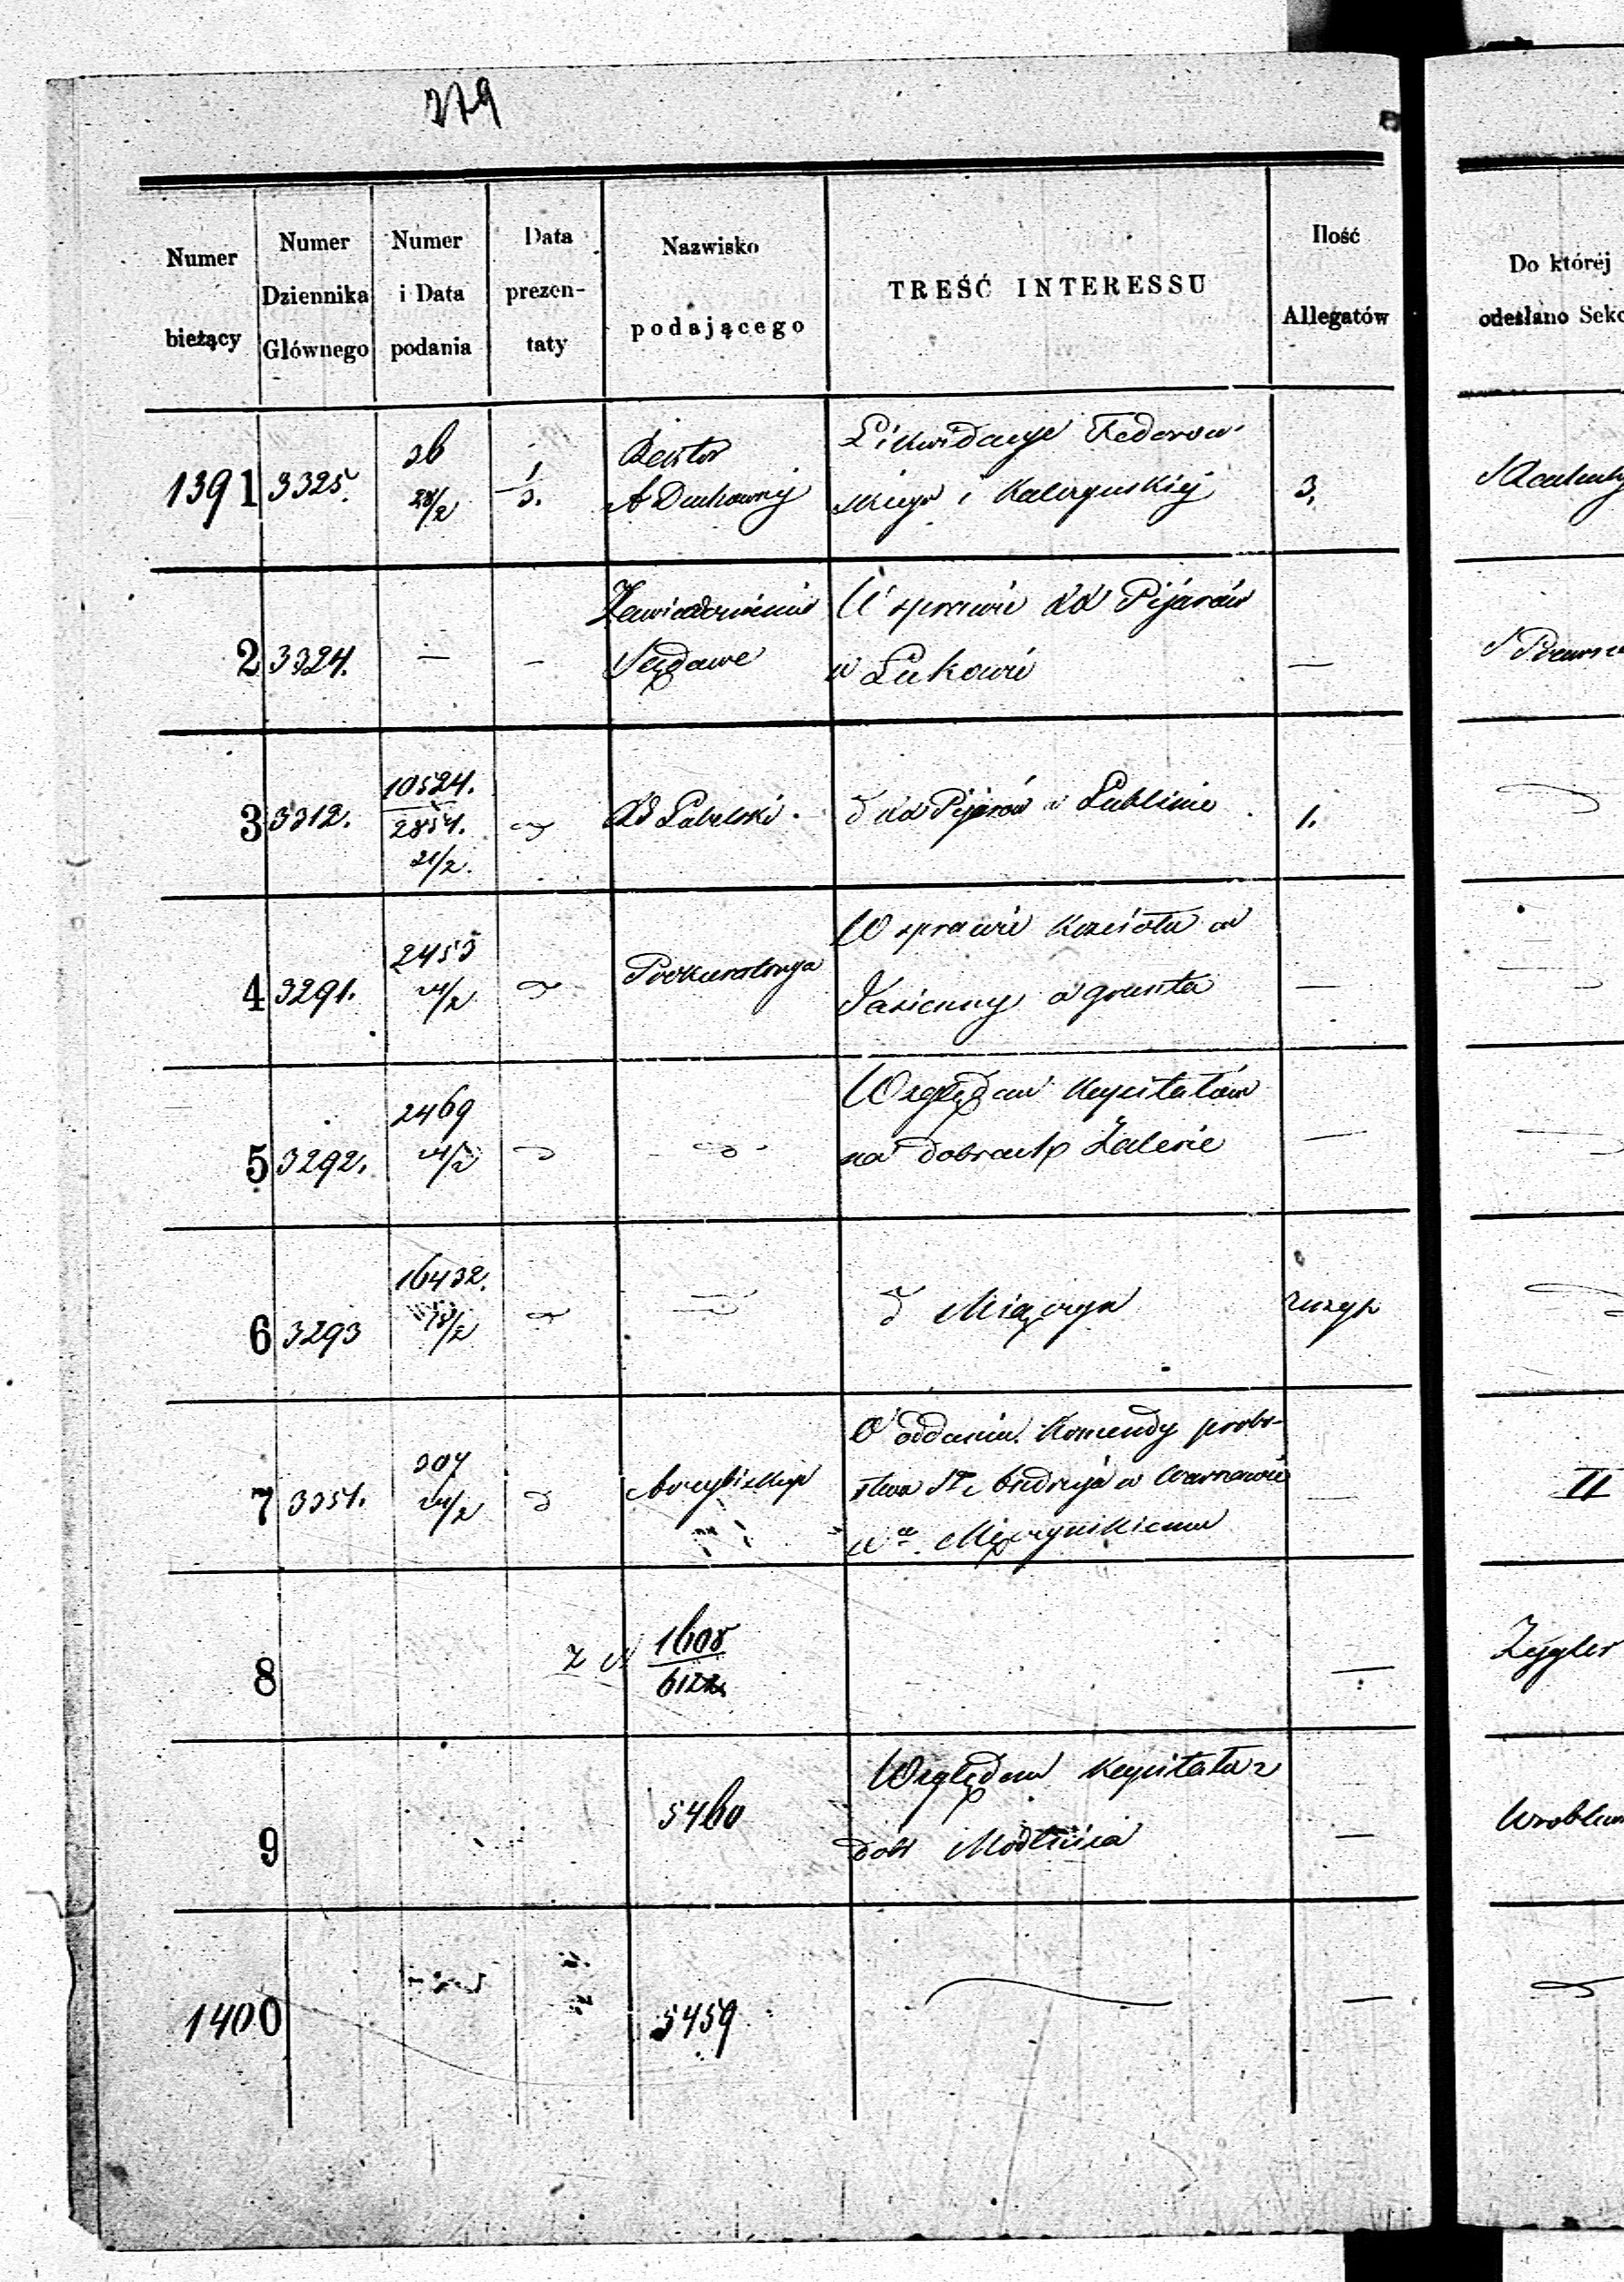 379
Numer bieżący
Numer Dziennika Głównego
Numer i Data podania
Data prezen-taty
Nazwisko podającego
TREŚĆ INTERESSU
Ilość Allegatów
Do której
odesłano Sekc
1391 3325. 36 28/2 1/3. Rektor Likwidacye Fedorow-
A Duchownéj skiego i 3.
2 3324. — — Zawiadomienie W sprawie XX Pijarów —
Sądowe w Łukowie
3 3312. 10524. 2854. 21/2. RG Lubelski. d XX Pijarów w Lublinie 1.
4 3291. 2453 24/2 Prokuratorya W sprawie Kościoła w —
o grunta
5 3292. 2469 24/2 Względem Kapitałów —
na dobrach Zalesie
6 3293 16432. 18/2 d Miączyn
7 3351. 307 24/2 Arcybiskup O oddaniu Komendy probo- — II
stwa Sgo Andrzeja w Warszawie
Xu Męczyńskiemu
8 Z N 1608 6122 — Zeygler
9 5460 Względem Kapitału z —
dóbr Modlina
1400 5459 —